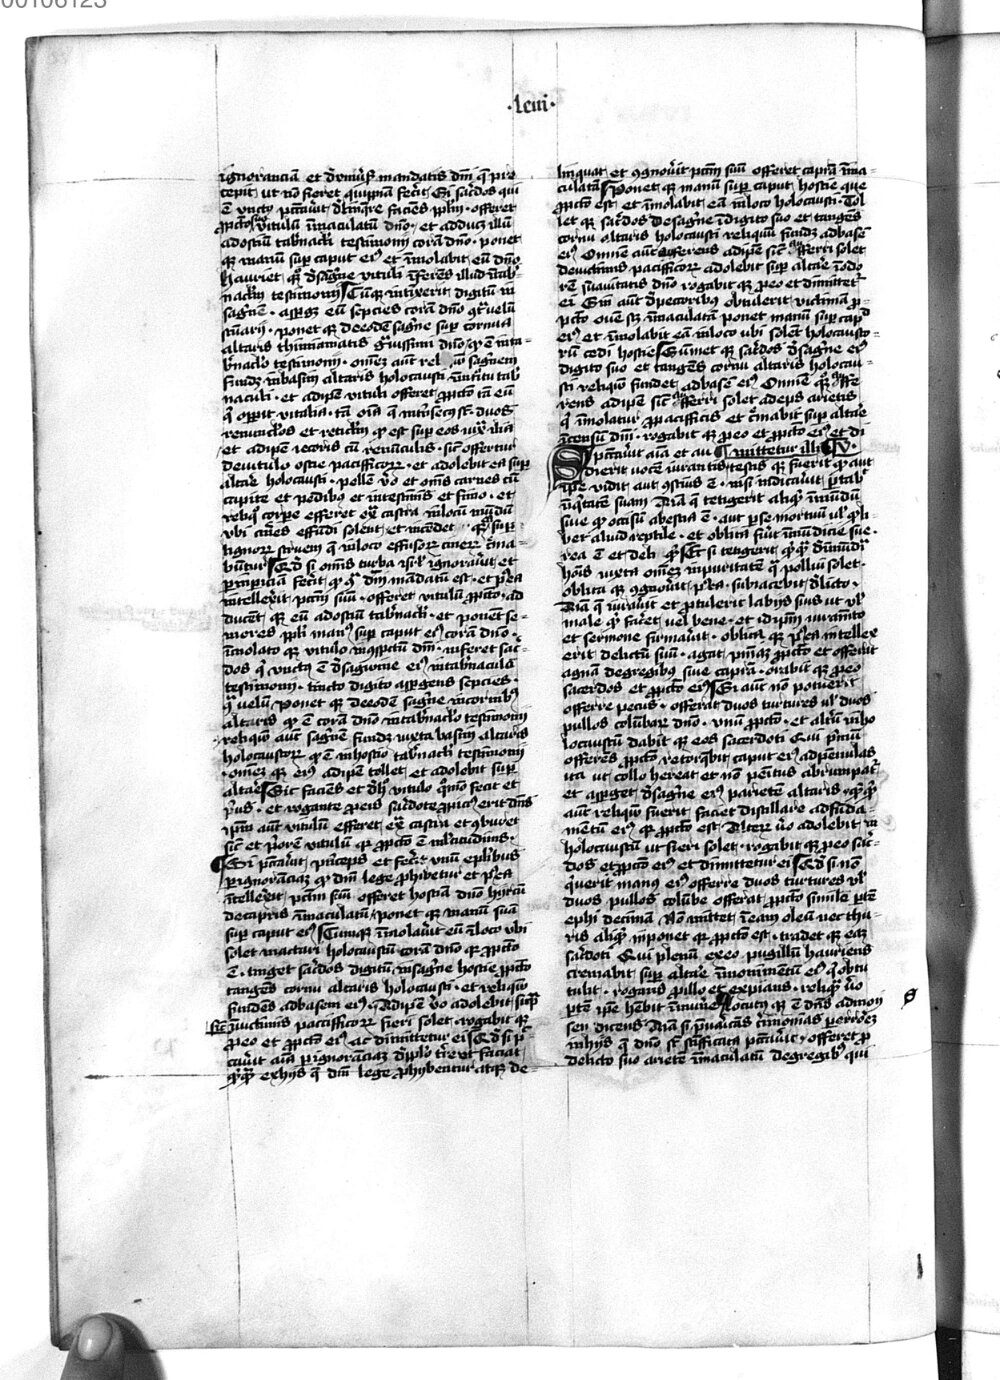 00106123
·leui·
ignoranciam et de vniu(er)s mandatis dni q pre
cepit ut no fieret quippiam fecerit Si sacerdos qui
e vnctus peccauerit delinquere faciens pplm · offeret
p pcto suo vitulu immaculatu dno · et adducet illu
ad ostiu tabnacli testimonij cora dno · ponet
q manu sup caput ei et immolabit eu dno
hauriet q de sagne vituli inferens illud in tab
nacklm testimonij Cuq intixerit digitu in
sagne · asperget eu sepcies cora dno contra velu
scuarij · ponet q de eode sagne sup cornua
altaris thimiamatis gratissimi dno quod e in ta
bnaclo testimonij · omne aut reliquu sagnem
fundet in basim altaris holocausti in introitu tab
naculi · et adipe vituli offeret p pcto ta eu
q opit vitalia · ta oia q intrinsecus st · duos
renunclos et reticlm quod est sup eos iuxta ilia
et adipe iecoris cu renunculis · sicut offertur
de vitulo ostie pacificor · et adolebit ea sup
altare holocausti · pelle vo et omis carnes cu
capite et pedibus et intestinis et fimo · et
reliquo corpe efferet extra castra in locu mundu
ubi cineres effundi solent et incendet ea sup
lignor struem q in loco effusor ciner crema
buntur Qd si omis turba isrl ignorauerit et
p impiciam fecerit quod contra dni mandatu est · et postea
intellexit pctm suu · offeret vitulu p pcto · ad
ducet q eu ad ostiu tabnacli · et ponent se
niores ppli manus sup caput ei cora dno ·
immolato q vitulo in conspectu dni · inferet sac
dos q vnctus e de saguine ei in tabnaculu
testimonij · tincto digito aspergens sepcies ·
contra velu ponet q de eode sagne in cornibus
altaris quod e cora dno in tabnaclo testimonij
reliquu aut sagne fundet iuxta basim altaris
holocaustor quod e in hostio tabnacli testimonij
· omne q ei adipe tollet et adolebit sup
altare Sic faciens et de hoc vitulo quomo fecit et
prius · et rogante p eis sacerdote ppicius erit dns
ipm aut vitulu efferet extra castra et comburet
sicut et priore vitulu quia p pcto e multitudinis ·
Si peccauerit princeps et fecerit vnu e pluribus
p ignorancia quod dni lege phibetur et postea
intellexit pctm suu · offeret hostia dno hircu
de capris immaculatu · ponet q manu sua
sup caput ei Cumq immolauerit eu in loco ubi
solet mactari holocaustu cora dno quia p pcto
e · tinget sacerdos digitu in sagne hostie p pcto
tangens cornu altaris holocausti · et reliquu
fundes ad basem ei · Adipe vo adolebit sup
sicut in victimis pacificor fieri solet · rogabit q
p eo et p pcto ei ac dimittetur ei Qd si p
cauerit aia p ignoranciam de pplo terre ut faciat
quicq ex hijs q dni lege phibentur atq de
linquat et cognouerit pctm suu offeret capra imma
culata Ponet q manu sup caput hostie que
p pcto est et immolabit ea in loco holocausti · Tol
let q sacerdos de sagne in digito suo et tangens
cornu altaris holocausti reliquu fundet ad basem
ei Omne aut offerens adipe sicut aufferri solet
de victimis pacificor adolebit sup altare in odo
re suauitatis dno rogabit q p eo et dimittetur
ei Sin aut de pecoribus obtulerit victima p
pcto oue scilicet immaculata ponet manu sup capud
ei et immolabit ea in loco ubi solent holocausto
ru cedi hostie Sumet q sacerdos de sagne ei
digito suo et tangens cornu altaris holocau
sti reliquu fundet ad base ei Omne q offe
rens adipe sicut aufferri solet adeps arietis
q immolatur p pacificis et cremabit sup altare
incensu dni · rogabit q p eo et p pcto ei et di
Si peccauerit aia et au mittetur illi · V ·
dierit uoce iurantis testis q fuerit quod aut
ipse vidit aut conscius e · nisi indicauerit portabit
iniquitate suam Aia q tetigerit aliquid inmundu
siue quod occisu a bestia e · aut p se mortuu uel quod li
bet aliud reptile · et oblita fuerit immudicie sue ·
rea e et deliquit Et si tetigerit quicq de immudi
hois iuxta omne inpuritate q pollui solet ·
oblita q cognouerit postea · subiacebit delicto ·
Aia q iurauerit et protulerit labijs suis ut uel
male quid faceret uel bene · et idipm iuramento
et sermone firmauerit · oblita q postea intellex
erit delictu suu · agat pniam p pcto et offerat
agna de gregibus siue capra · orabit q p eo
sacerdos et p pcto ei Si aut no potuerit
offerre pecus · offerat duos turtures uel duos
pullos columbar dno · vnu p pcto · et alteru in ho
locaustu dabit q eos sacerdoti Qui primu
offerens p pcto retorquebit caput ei ad pennulas
ita ut collo hereat et non penitus abrumpatur
et asperget de sagne ei pariete altaris quicquid
aut reliquu fuerit faciet distillare ad funda
mentu ei quia p pcto est Alteru vo adolebit in
holocaustu ut fieri solet · rogabit q p eo sacer
dos et p pcto ei et dimittetur ei Qd si non
quiuerit manus ei offerre duos turtures uel
duos pullos columbe offerat p pcto simile parte
ephi decimam No mittet in eam oleu nec thu
ris aliquid inponet quia p pcto est · tradet q eam
sacerdoti Qui plenu ex eo pugillu hauriens
cremabit sup altare in monimentu ei q obtu
lit · rogans p illo et expians · reliqua vo
parte ipe hebit in munere Locutus q e dns ad moy
sen dicens Aia si preuaricans cerimonias p errore
in hijs q dno st scificata peccauerit · offeret p
delicto suo ariete immaculatu de gregibus qui